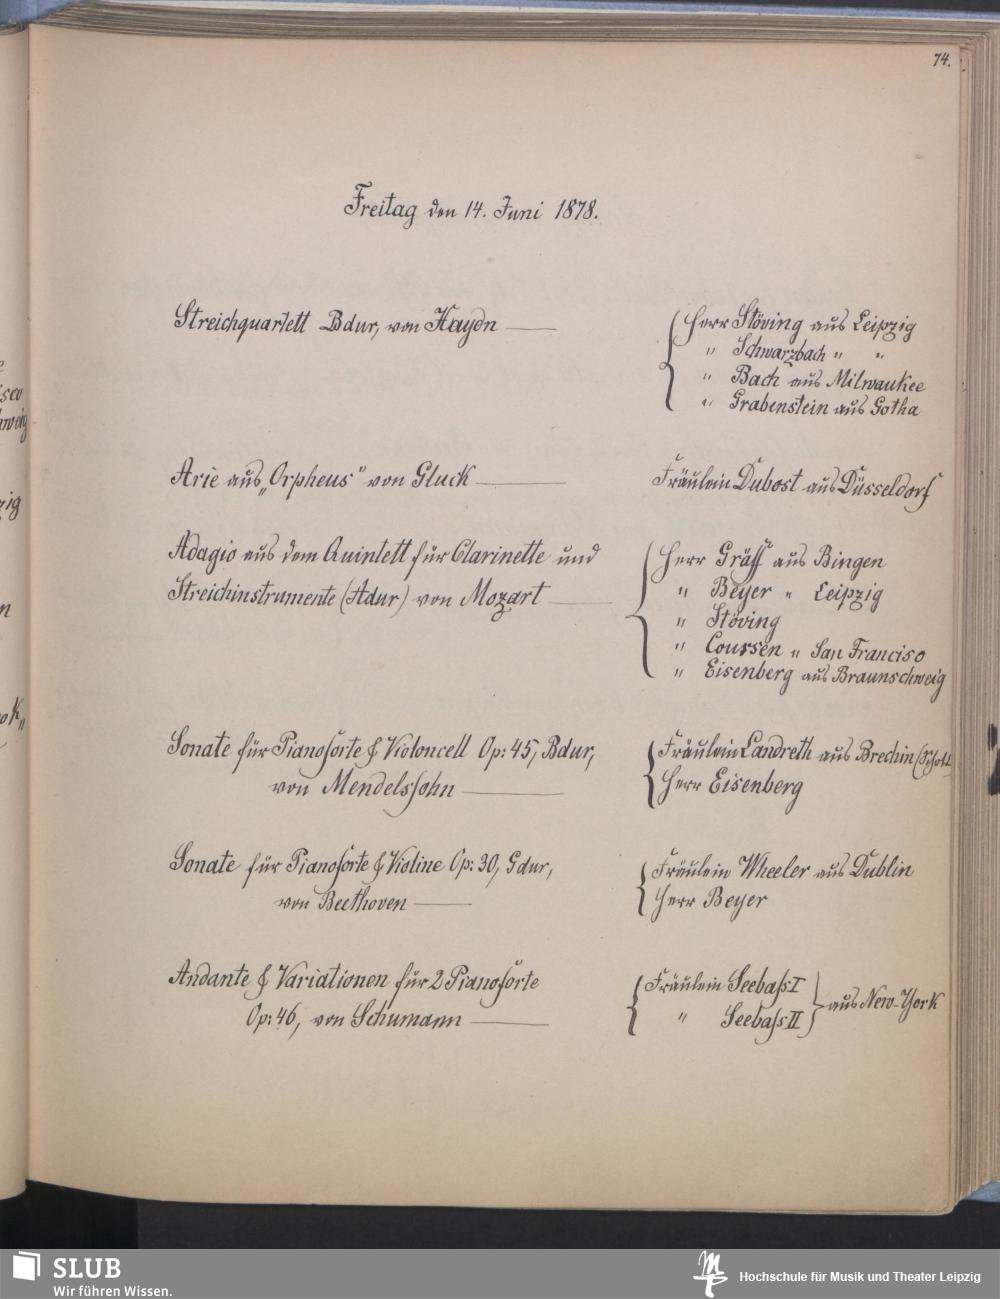 74.
Freitag den 14. Juni 1878.
Streichquartett Bdur, von Haydn —
Herr Stöving aus Leipzig
" Schwarzbach " "
" Bach aus Milwaukee
" Grabenstein aus Gotha
Arie aus „Orpheus" von Gluck —
Fräulein Dubost aus Düsseldorf
Adagio aus dem Quintett für Clarinette und
Streichinstrumente (Adur) von Mozart —
Herr Gräff aus Bingen
" Beyer " Leipzig
" Stöving
" Coursen " San Franciso
" Eisenberg aus Braunschweig
Sonate für Pianoforte & Violoncell Op: 45, Bdur,
von Mendelssohn —
Fräulein Landreth aus Brechin (Schott
Herr Eisenberg
Sonate für Pianoforte & Violine Op: 30, Gdur,
von Beethoven —
Fräulein Wheeler aus Dublin
Herr Beyer
Andante & Variationen für 2 Pianoforte
Op: 46, von Schumann —
Fräulein Seebass I
" Seebass II
aus New-York
SLUB
Wir führen Wissen.
Hochschule für Musik und Theater Leipzig